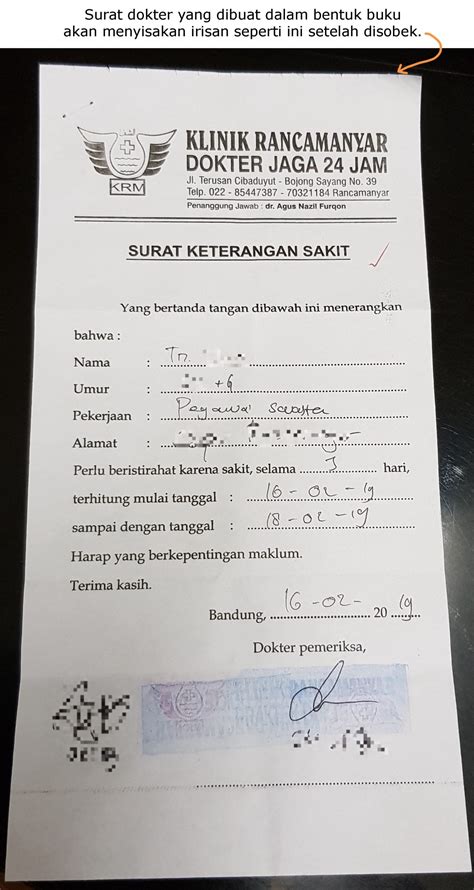 Surat dokter yang dibuat dalam bentuk buku
akan menyisakan irisan seperti ini setelah disobek.
KRM
KLINIK RANCAMANYAR
DOKTER JAGA 24 JAM
Jl. Terusan Cibaduyut - Bojong Sayang No. 39
Telp. 022 - 85447387 - 70321184 Rancamanyar
Penanggung Jawab : dr. Agus Nazil Furqon
SURAT KETERANGAN SAKIT
Yang bertanda tangan dibawah ini menerangkan
bahwa :
Nama : Tn.
Umur : th
Pekerjaan : Pegawai Swasta
Alamat :
Perlu beristirahat karena sakit, selama 3 hari,
terhitung mulai tanggal : 16 - 02 - 19
sampai dengan tanggal : 18 - 02 - 19
Harap yang berkepentingan maklum.
Terima kasih.
Bandung, 16 - 02 - 20 19
Dokter pemeriksa,